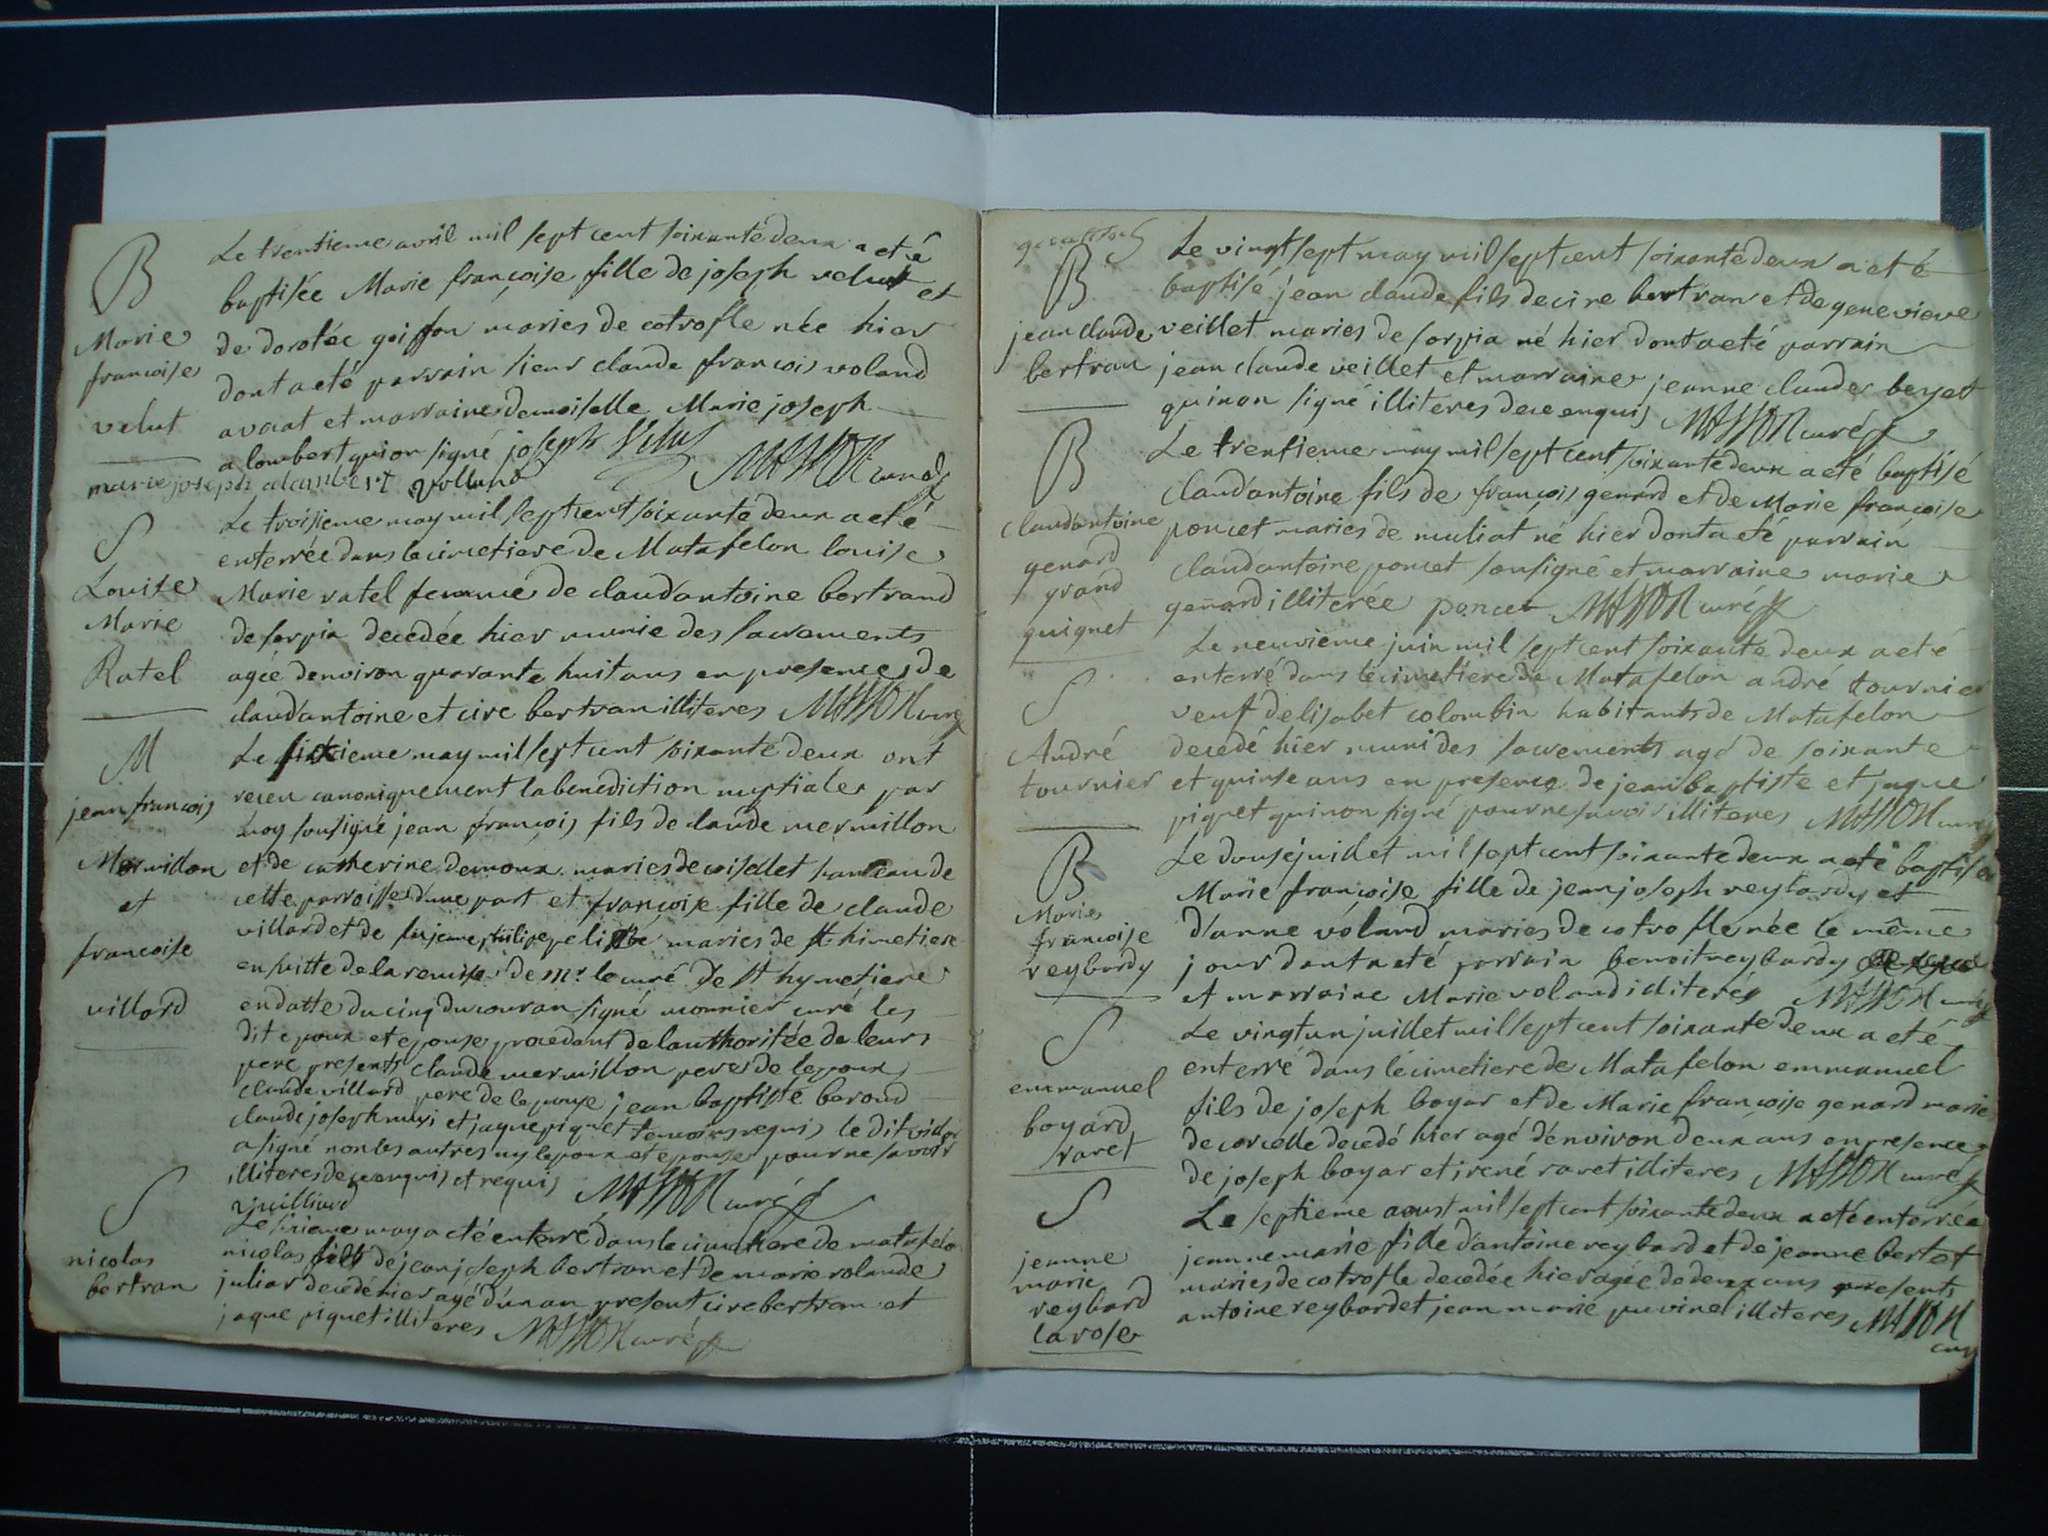 B
Marie
francoise
velut
Le trentieme avril mil sept cent soixante deux a eté
baptisée Marie françoise fille de joseph velut et
de dorotée goiffon maries de cotrofle née hier
dont a eté parrain sieur claude francois voland
avocat et marraine demoiselle Marie joseph
alombert qui on signé joseph Velut MASSON curé
marie joseph alambert volland
S
Louise
Marie
Ratel
Le troisieme may mil sept cent soixante deux a eté
enterrée dans le cimetiere de Matafelon louise
Marie ratel femme de claud'antoine bertrand
de sorpia decedée hier munie des sacrements
agée d'environ quarante huit ans en presence de
claud'antoine et cire bertran illiteres MASSON curé
M
jean francois
Mermillon
et
francoise
villard
Le sixieme may mil sept cent soixante deux ont
receu canoniquement la benediction nuptiale par
moy sousigné jean françois fils de claude mermillon
et de catherine demoux maries de coisellet hameau de
cette parroisse d'une part et françoise fille de claude
villard et de maries de st himetiere
ensuitte de la remise de mr. le curé de st hymetiere
en datte du cinq du couran signé monnier curé les
dit epoux et epouse procedant de l'authoritée de leurs
pere presents claude mermillon pere de lepoux
claude villard pere de lepouse jean baptiste baroud
claude joseph et jaque piquet temoins requis le dit
a signé non les autres ny lepoux et epouse pour ne savoir
illiteres de ce enquis et requis MASSON curé
S
nicolas
bertran
Le may a eté enterré dans le cimetiere de matafelon
nicolas fils de jean joseph bertran et de marie rolande
juliar decedé hier agé d'un an present cire bertran et
jaque piquet illiteres MASSON curé
B
jean claude
bertran
Le vingt sept may mil sept cent soixante deux a eté
baptisé jean claude fils de cire bertran et de genevieve
veillet maries de sorpia né hier dont a eté parrain
jean claude veillet et marraine jeanne claude beyet
qui non signé illiteres de ce enquis MASSON curé
B
claudantoine
genard
grand
guignet
Le trentieme may mil sept cent soixante deux a eté baptisé
claud'antoine fils de françois genard et de Marie françoise
poncet maries de muliat né hier dont a eté parrain
claud'antoine poncet sousigné et marraine marie
genard illiterée poncet MASSON curé
S
André
tournier
Le neuvieme juin mil sept cent soixante deux a eté
enterré dans le cimetiere de Matafelon andré tournier
veuf d'elisabet colombin habitants de Matafelon
decedé hier muni des sacrements agé de soixante
et quinse ans en presence de jean baptiste et jaque
piquet qui non signé pour ne savoir illiteres MASSON curé
B
Marie
francoise
reybardy
Le douse juillet mil sept cent soixante deux a eté baptisée
Marie françoise fille de jean joseph reybardy et
d'anne voland maries de cotrofle née le même
jour dont a eté parrain benoit reybardy
et marraine Marie voland illiterés MASSON curé
S
emmanuel
boyard
ravet
Le vingt un juillet mil sept cent soixante deux a eté
enterré dans le cimetiere de Matafelon emmanuel
fils de joseph boyar et de Marie françoise genard marie
de corcelle decedé hier agé d'environ deux ans en presence
de joseph boyar et irené ravet illiteres MASSON curé
S
jeanne
marie
reybard
larose
Le septieme aoust mil sept cent soixante deux a eté enterrée
jeanne marie fille d'antoine reybard et de jeanne bertet
maries de cotrofle decedée hier agée de deux ans presents
antoine reybard et jean marie puvinel illiteres MASSON
curé